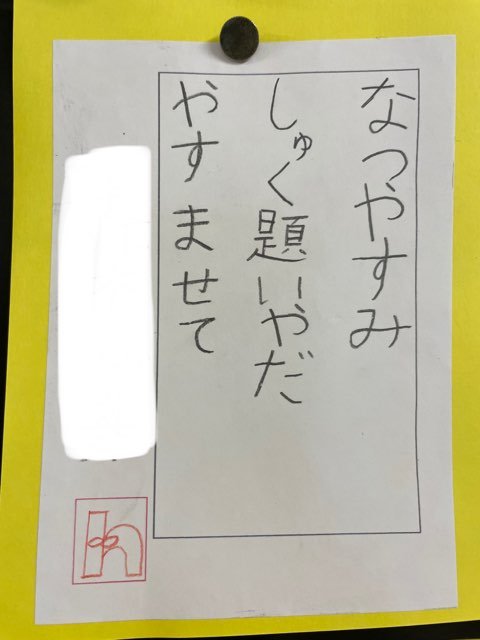 なつやすみ
しゅく題いやだ
やすませて